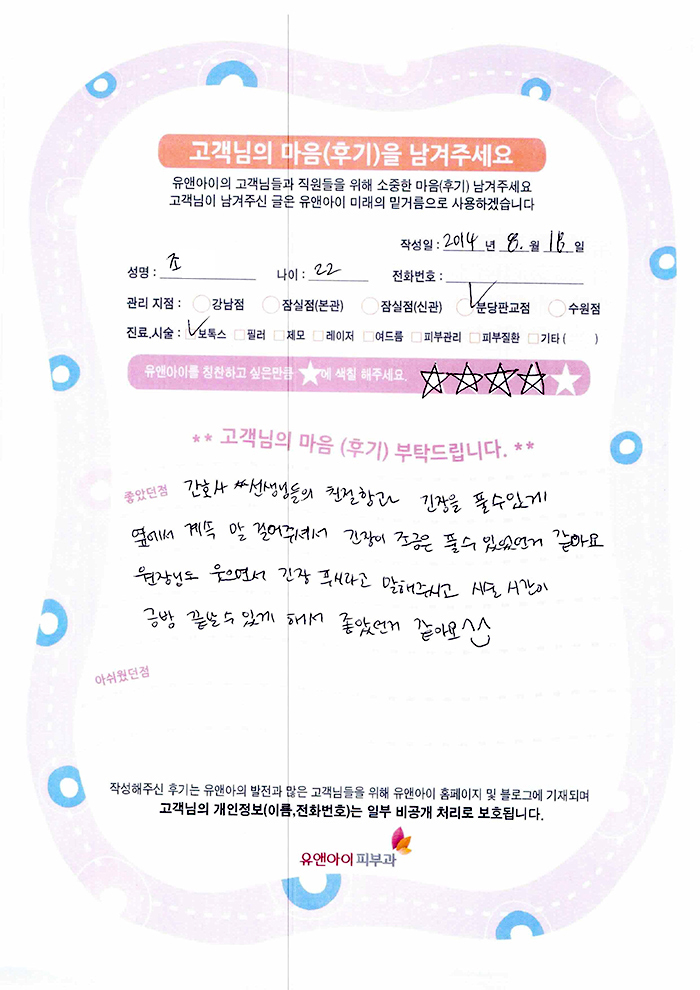 고객님의 마음(후기)을 남겨주세요
유앤아이의 고객님들과 직원들을 위해 소중한 마음(후기) 남겨주세요
고객님이 남겨주신 글은 유앤아이 미래의 밑거름으로 사용하겠습니다
작성일 : 2014 년 8. 월 18 일
성명 : 조 나이 : 22 전화번호 :
관리 지점 : 강남점 잠실점(본관) 잠실점(신관) 분당판교점 수원점
진료,시술 : 보톡스 필러 제모 레이저 여드름 피부관리 피부질환 기타 ( )
유앤아이를 칭찬하고 싶은만큼 ★에 색칠 해주세요.
** 고객님의 마음 (후기) 부탁드립니다. **
좋았던점 간호사 선생님들의 친절함과 긴장을 풀수있게
옆에서 계속 말 걸어주셔서 긴장이 조금은 풀수 있었던거 같아요
원장님도 웃으면서 긴장 푸시라고 말해주시고 시술 시간이
금방 끝날수 있게 해서 좋았던거 같아요^^
아쉬웠던점
작성해주신 후기는 유앤아의 발전과 많은 고객님들을 위해 유앤아이 홈페이지 및 블로그에 기재되며
고객님의 개인정보(이름,전화번호)는 일부 비공개 처리로 보호됩니다.
유앤아이피부과